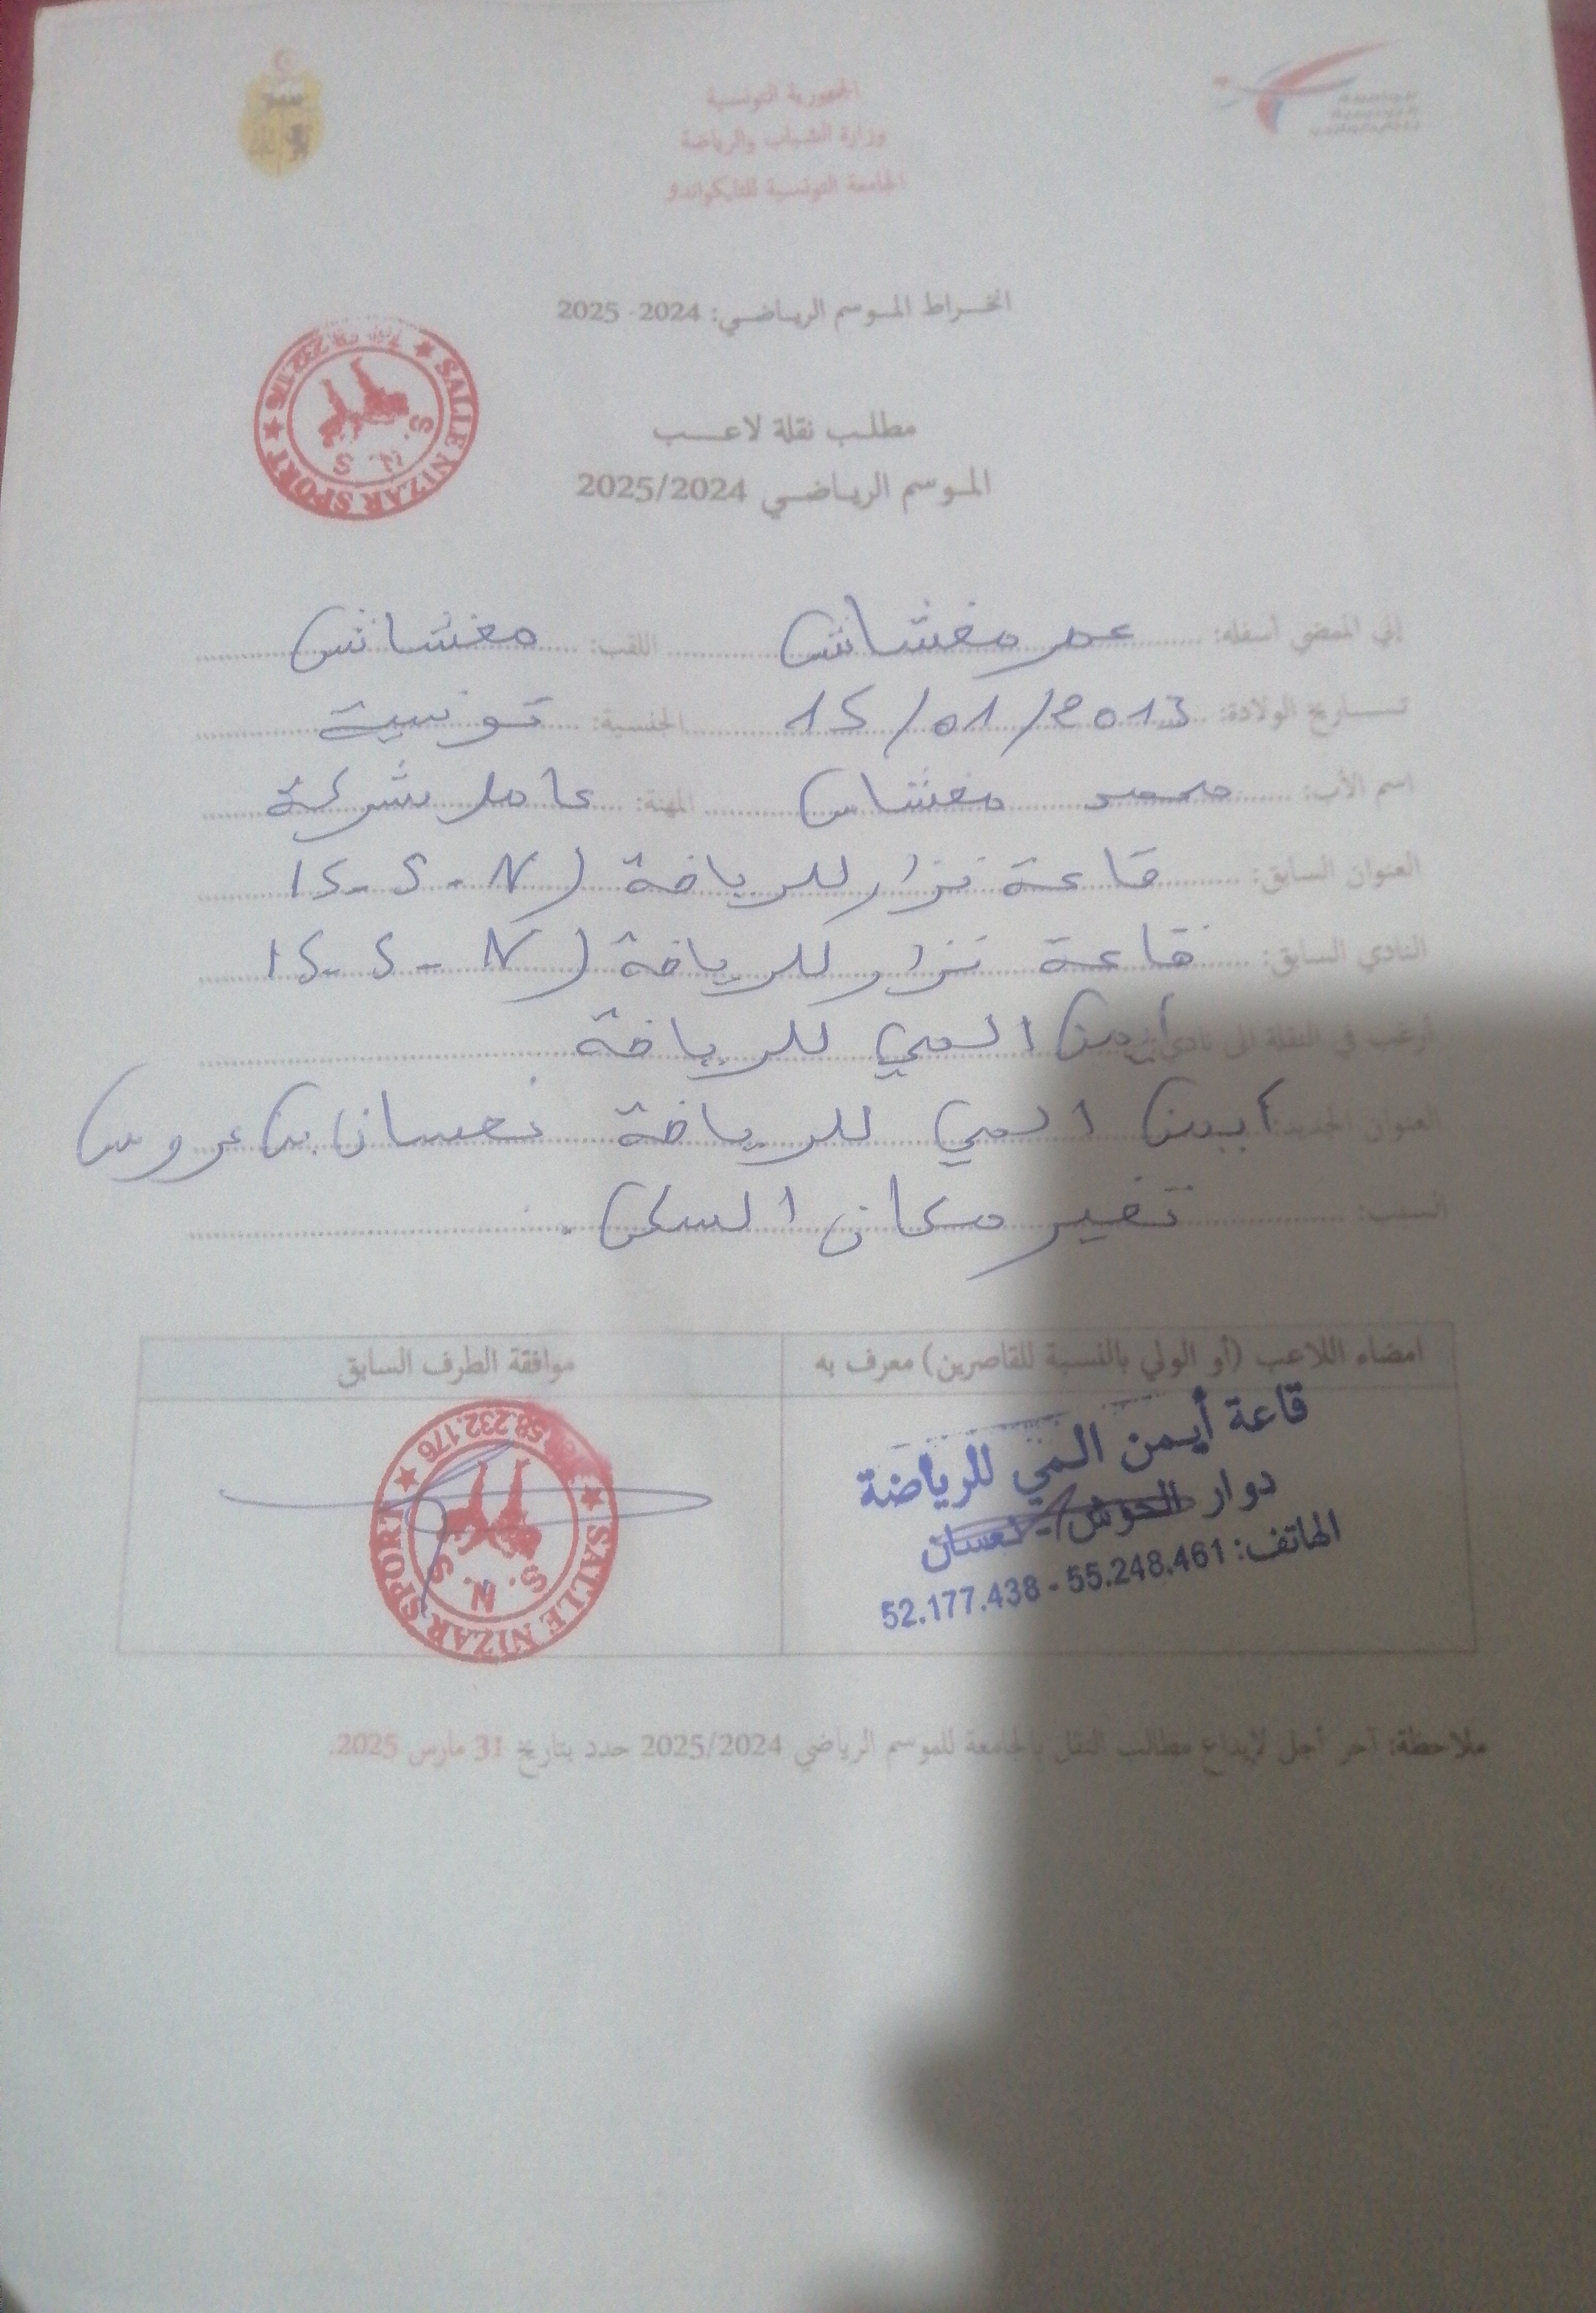 الجمهورية التونسية
وزارة الشباب والرياضة
الجامعة التونسية للتايكواندو
انخراط الموسم الرياضي: 2024- 2025
مطلب نقلة لاعب
الموسم الرياضي 2025/2024
SALLE NIZAR SPORT
S. N. S
إني الممضي أسفله: عمر مغشاش اللقب: مغشاش
تاريخ الولادة: 15/01/2013 الجنسية: تونسية
اسم الأب: محمد مغشاش المهنة: عامل بشركة
العنوان السابق: قاعة نزار للرياضة (S-S-N)
النادي السابق: قاعة نزار للرياضة (S-S-N)
أرغب في النقلة الى نادي: أيمن المي للرياضة
العنوان الجديد: أيمن المي للرياضة نعسان بن عروس
السبب: تغير مكان السكن.
امضاء اللاعب (أو الولي بالنسبة للقاصرين) معرف به
موافقة الطرف السابق
قاعة أيمن المي للرياضة
دوار الحوش - نعسان
الهاتف: 55.248.461 - 52.177.438
58.232.176
SALLE NIZAR SPORT
S. N. S
ملاحظة: آخر أجل لإيداع مطالب النقل بالجامعة للموسم الرياضي 2025/2024 حدد بتاريخ 31 مارس 2025.